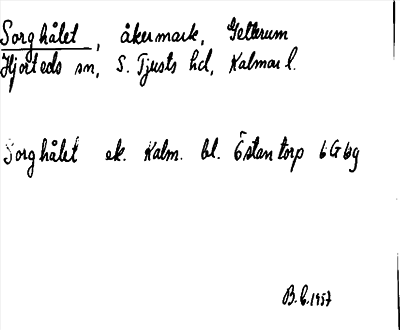 Sorghålet, åkermark, Gelterum
Hjorteds sn, S. Tjusts hd, Kalmar l.
Sorghålet ek. Kalm. bl. Östantorp 6G6g
B.C. 1957